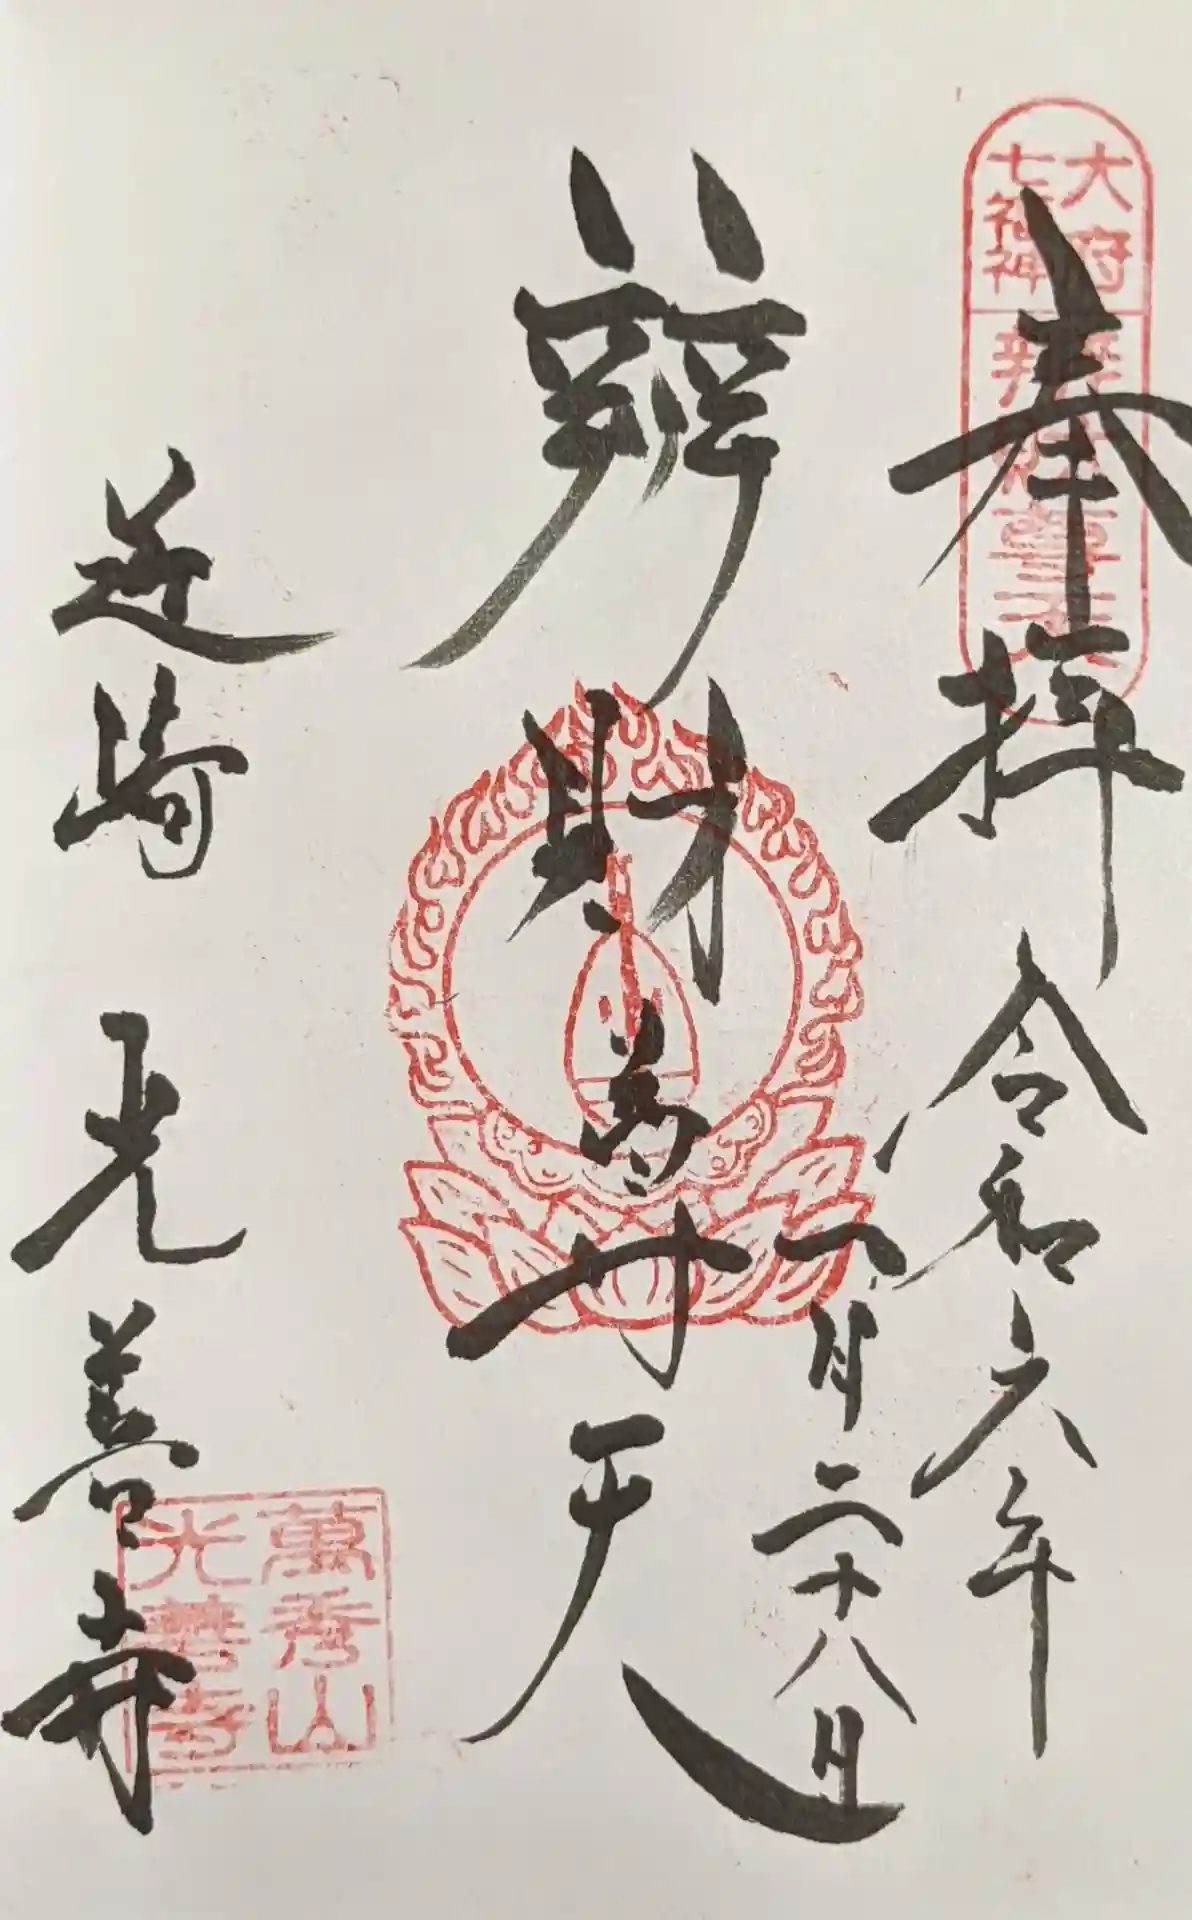 大府
七福神
奉拝
令和六年
月二十八日
辨財尊天
近崎 光善寺
萬秀山
光善寺